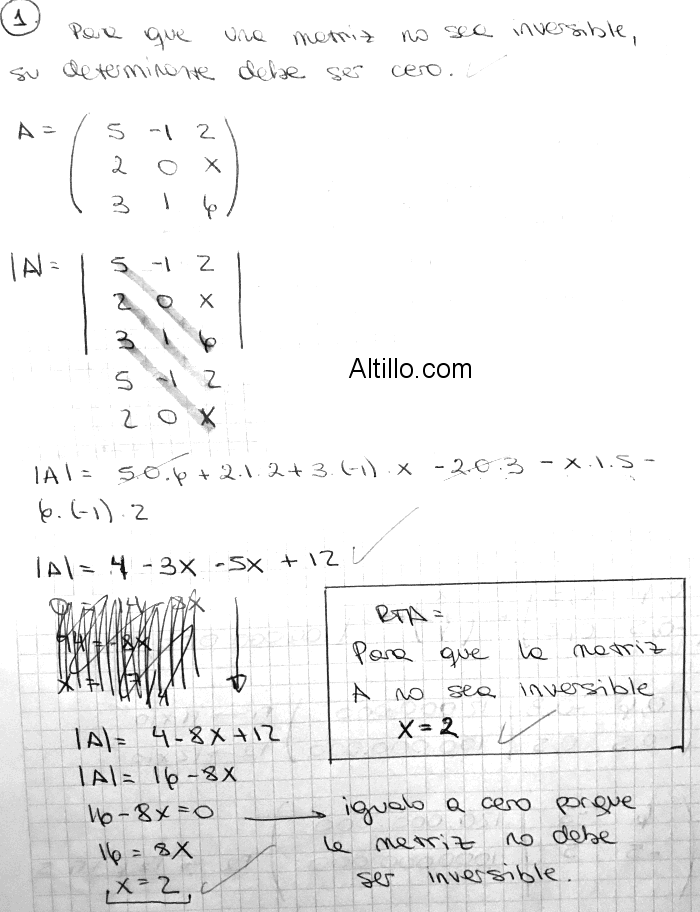 1
Para que una matriz no sea inversible,
su determinante debe ser cero.
A = ( 5 -1 2
2 0 x
3 1 6 )
|A| = | 5 -1 2 |
2 0 x
3 1 6
5 -1 2
2 0 x
Altillo.com
|A| = 5.0.6 + 2.1.2 + 3.(-1).x - 2.0.3 - x.1.5 -
6.(-1).2
|A| = 4 - 3x - 5x + 12
|A| = 4 - 8x + 12
|A| = 16 - 8x
16 - 8x = 0
16 = 8x
x = 2
RTA =
Para que la matriz
A no sea inversible
x = 2
igualo a cero porque
la matriz no debe
ser inversible.